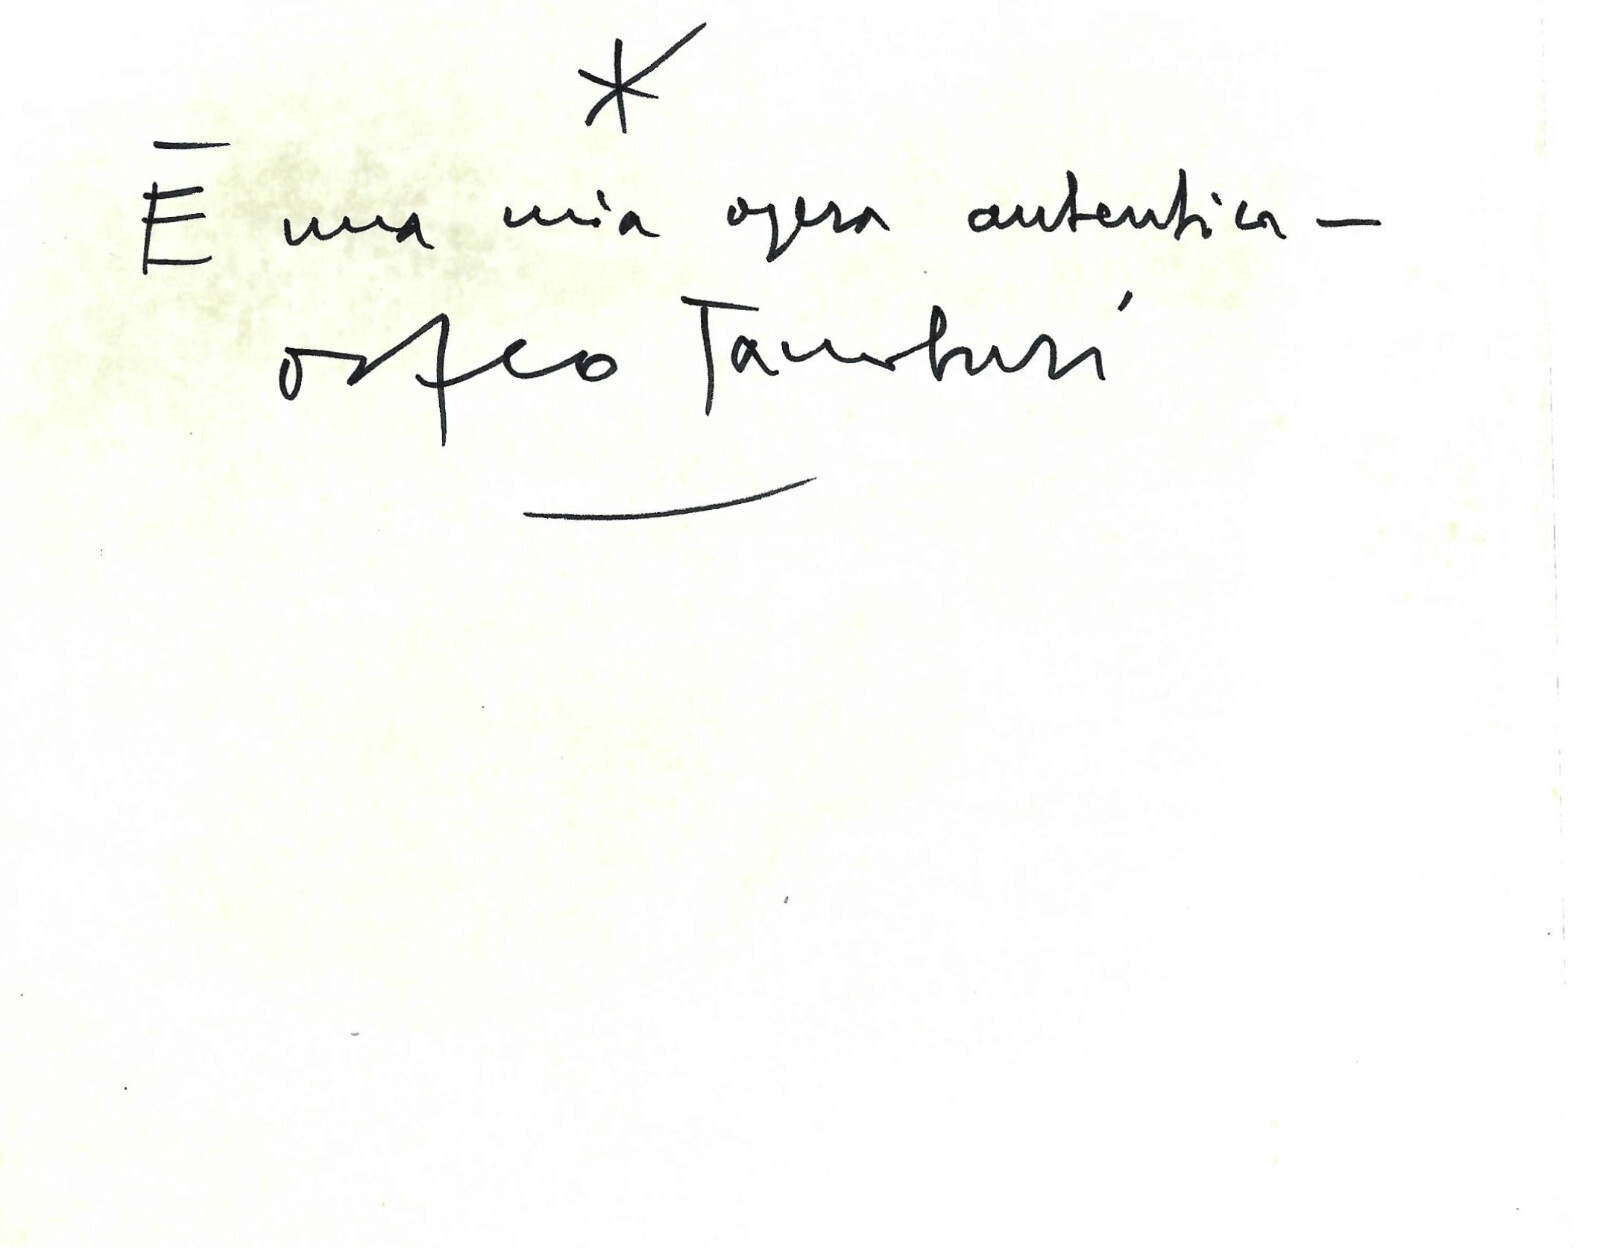 *
È una mia opera autentica —
orfeo Tamburi